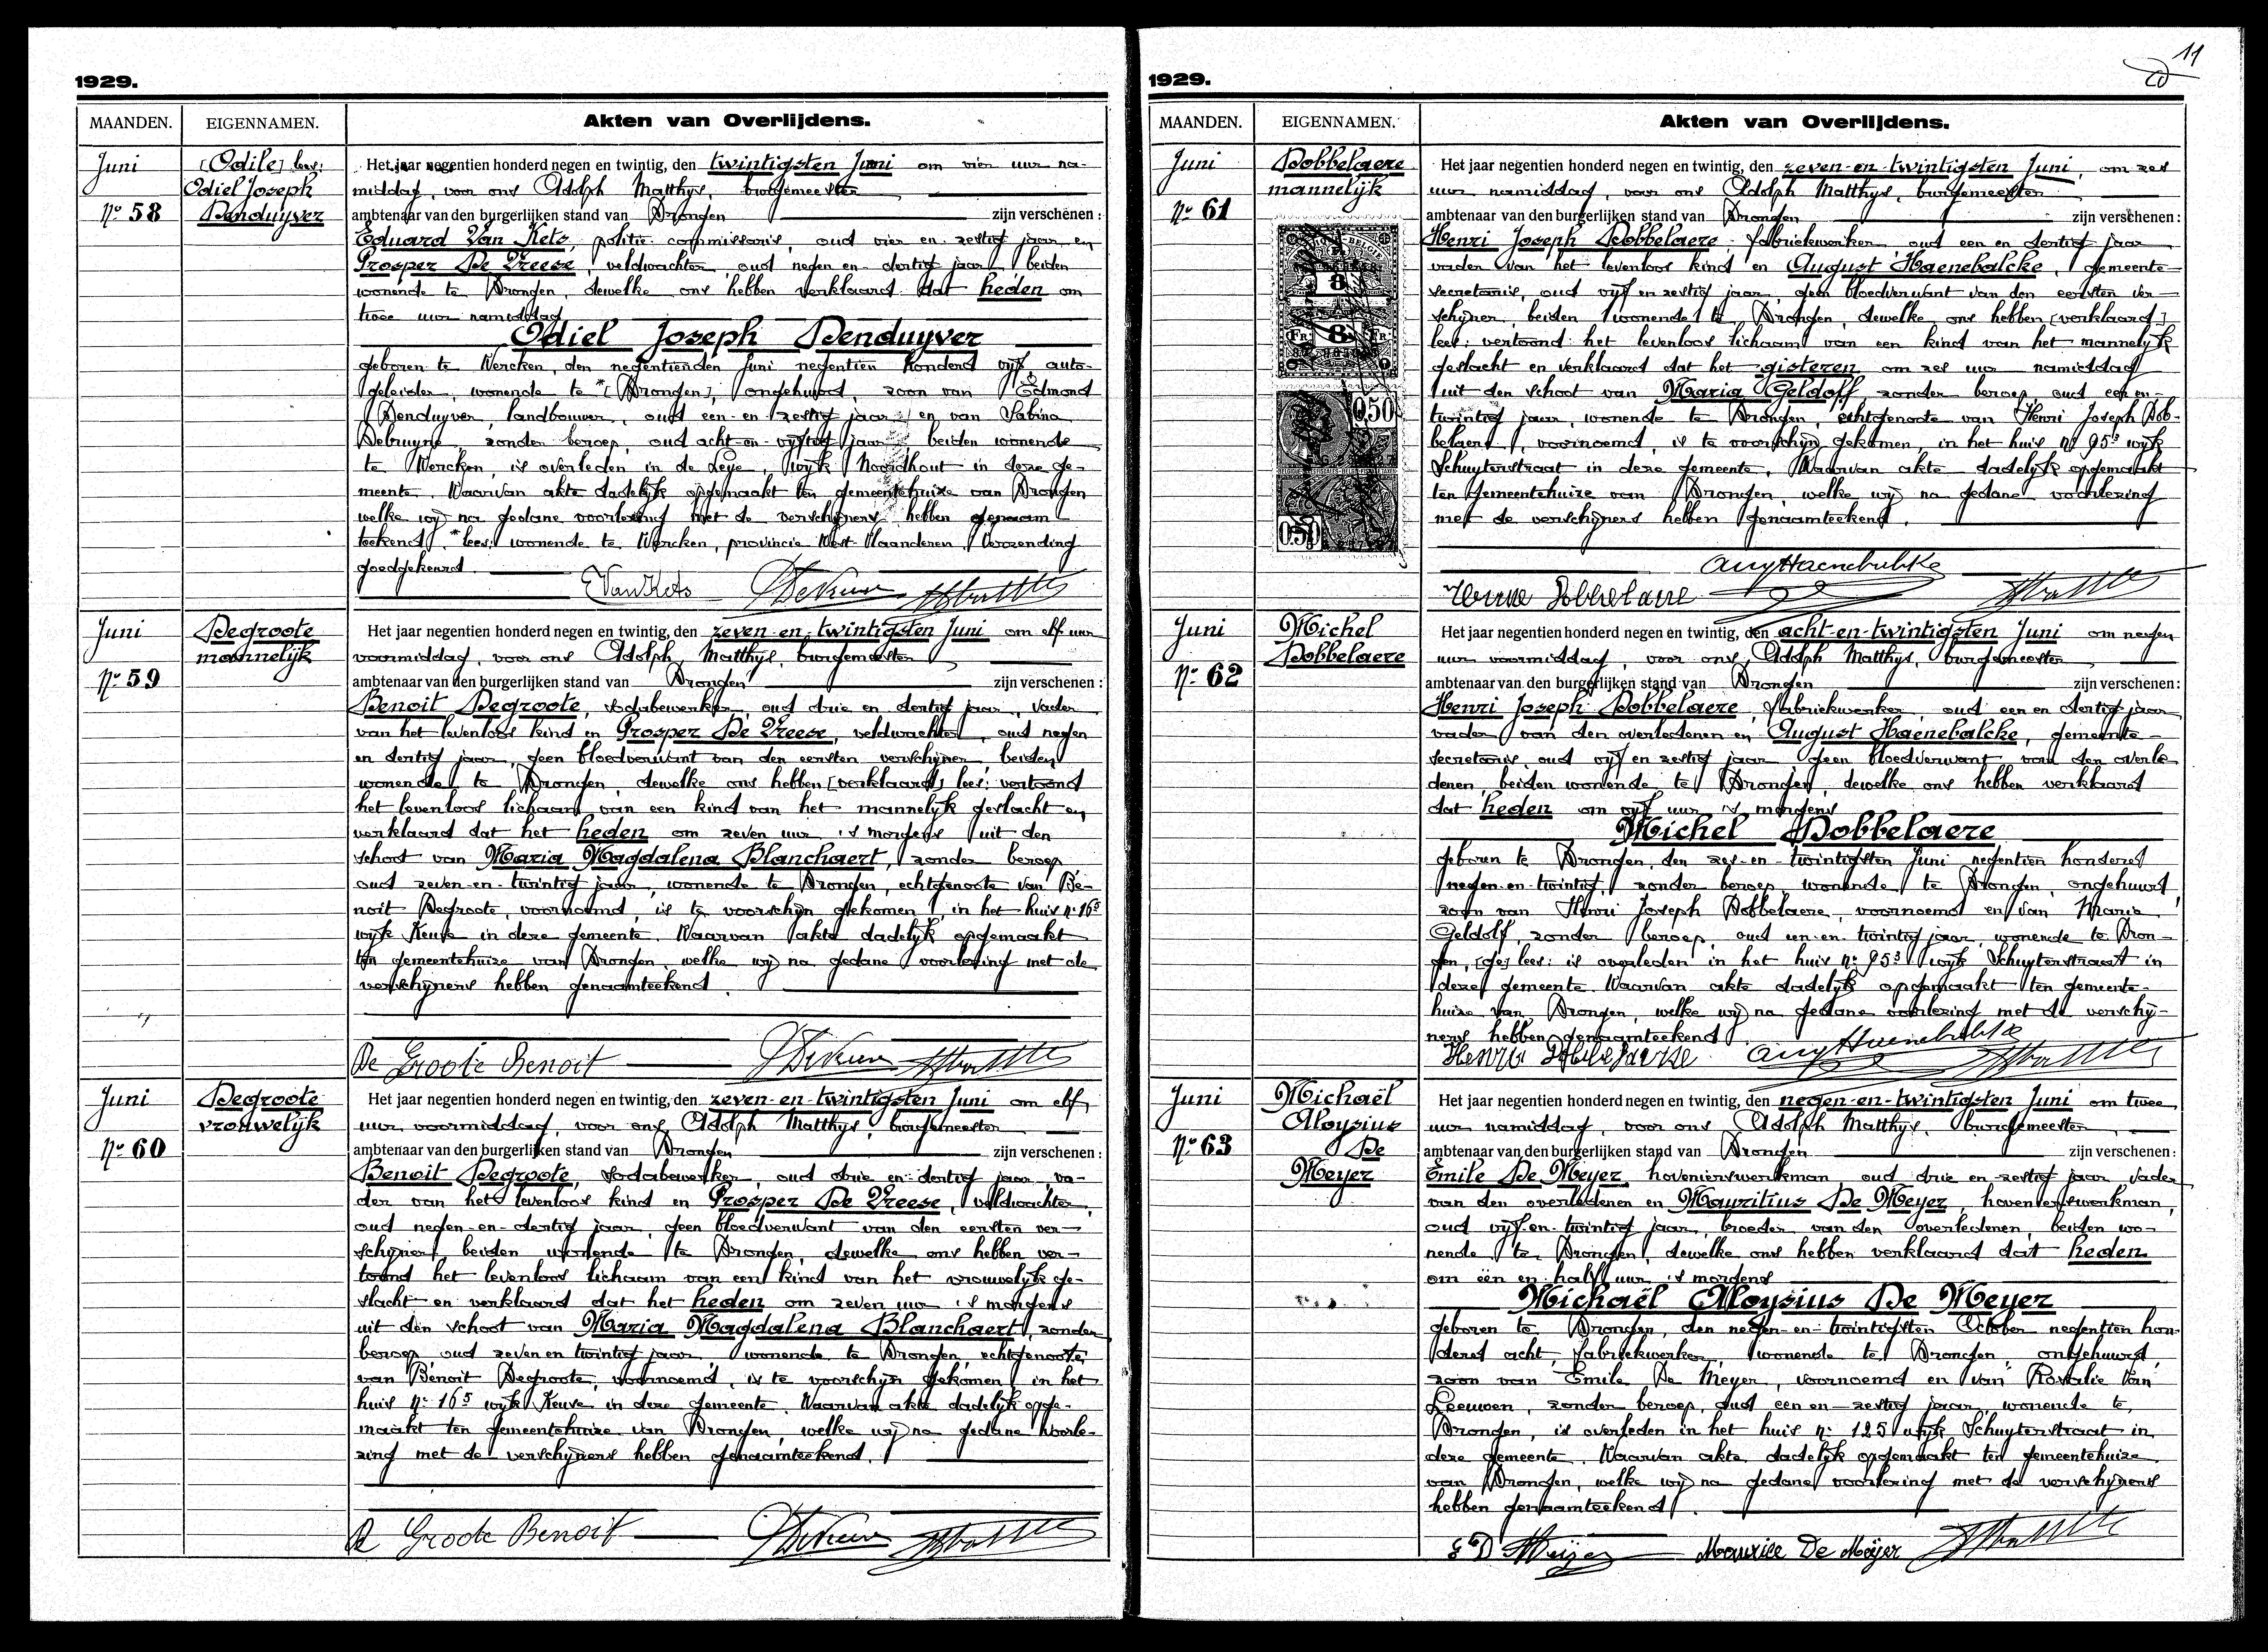 1929.
MAANDEN.
EIGENNAMEN.
Akten van Overlijdens.
Juni
Nº 58
[Odile] lees:
Odiel Joseph
Denduyver
Het jaar negentien honderd negen en twintig, den twintigsten Juni om vier uur na-
middag, voor ons Adolph Matthys, burgemeester
ambtenaar van den burgerlijken stand van Drongen zijn verschenen:
Eduard Van Kets, politie commissaris, oud vier en zestig jaar en
Prosper De Vreese, veldwachter oud negen en dertig jaar, beiden
wonende te Drongen, dewelke ons hebben verklaard dat heden om
twee uur namiddag
Odiel Joseph Denduyver
geboren te Wercken, den negentienden Juni negentien honderd vijf, auto-
geleider, wonende te *[Drongen], ongehuwd, zoon van Edmond
Denduyver, landbouwer, oud een-en-zestig jaar en van Sabina
Debruyne, zonder beroep, oud acht-en-vijftig jaar, beiden wonende
te Wercken, is overleden in de Leye, wijk Noordhout in deze ge-
meente. Waarvan akte dadelijk opgemaakt ten gemeentehuize van Drongen
welke wij na gedane voorlezing met de verschijners hebben genaam-
teekend. *lees: wonende te Wercken, provincie West-Vlaanderen. Verzending
goedgekeurd
E Van Kets
Juni
Nº 59
Degroote
mannelijk
Het jaar negentien honderd negen en twintig, den zeven-en-twintigsten Juni om elf uur
voormiddag, voor ons Adolph Matthys, burgemeester
ambtenaar van den burgerlijken stand van Drongen zijn verschenen:
Benoit Degroote, sodabewerker, oud drie en dertig jaar, vader
van het levenloos kind en Prosper De Vreese, veldwachter, oud negen
en dertig jaar, geen bloedverwant van den eersten verschijner, beiden
wonende te Drongen, dewelke ons hebben [verklaard] lees: vertoond
het levenloos lichaam van een kind van het mannelijk geslacht en
verklaard dat het heden om zeven uur 's morgens uit den
schoot van Maria Magdalena Blanchaert, zonder beroep,
oud zeven-en-twintig jaar, wonende te Drongen, echtgenoote van Be-
noit Degroote, voornoemd, is te voorschijn gekomen, in het huis nº 16⁵
wijk Keuze in deze gemeente. Waarvan akte dadelijk opgemaakt
ten gemeentehuize van Drongen, welke wij na gedane voorlezing met de
verschijners hebben genaamteekend.
De Groote Benoit
Juni
Nº 60
Degroote
vrouwelijk
Het jaar negentien honderd negen en twintig, den zeven-en-twintigsten Juni om elf
uur voormiddag, voor ons Adolph Matthys, burgemeester
ambtenaar van den burgerlijken stand van Drongen zijn verschenen:
Benoit Degroote, sodabewerker, oud drie en dertig jaar, va-
der van het levenloos kind en Prosper De Vreese, veldwachter,
oud negen-en-dertig jaar, geen bloedverwant van den eersten ver-
schijner, beiden wonende te Drongen, dewelke ons hebben ver-
toond het levenloos lichaam van een kind van het vrouwelijk ge-
slacht en verklaard dat het heden om zeven uur 's morgens
uit den schoot van Maria Magdalena Blanchaert, zonder
beroep, oud zeven en twintig jaar, wonende te Drongen, echtgenoote
van Benoit Degroote, voornoemd, is te voorschijn gekomen in het
huis nº 16⁵ wijk Keuze in deze gemeente. Waarvan akte dadelijk opge-
maakt ten gemeentehuize van Drongen, welke wij na gedane voorle-
zing met de verschijners hebben genaamteekend.
De Groote Benoit
11
1929.
MAANDEN.
EIGENNAMEN.
Akten van Overlijdens.
Juni
Nº 61
Dobbelaere
mannelijk
8
FR 8 FR
0.50
0.50
Het jaar negentien honderd negen en twintig, den zeven-en-twintigsten Juni, om zes
uur namiddag, voor ons Adolph Matthys, burgemeester
ambtenaar van den burgerlijken stand van Drongen zijn verschenen:
Henri Joseph Dobbelaere, fabriekwerker, oud een en dertig jaar
vader van het levenloos kind en August Haenebalcke, gemeente-
secretaris, oud vijf en zestig jaar, geen bloedverwant van den eersten ver-
schijner, beiden wonende te Drongen, dewelke ons hebben [verklaard]
lees: vertoond het levenloos lichaam van een kind van het mannelijk
geslacht en verklaard dat het gisteren om zes uur namiddag
uit den schoot van Maria Geldolf zonder beroep oud een en-
twintig jaar, wonende te Drongen, echtgenoote van Henri Joseph Dob-
belaere, voornoemd, is te voorschijn gekomen, in het huis nº 95³ wijk
Schuyterstraat in deze gemeente. Waarvan akte dadelijk opgemaakt
ten gemeentehuize van Drongen, welke wij na gedane voorlezing
met de verschijners hebben genaamteekend.
Aug Haenebalcke
Juni
Nº 62
Michel
Dobbelaere
Het jaar negentien honderd negen en twintig, den acht-en-twintigsten Juni om negen
uur voormiddag, voor ons, Adolph Matthys, burgemeester
ambtenaar van den burgerlijken stand van Drongen zijn verschenen:
Henri Joseph Dobbelaere, fabriekwerker, oud een en dertig jaar
vader van den overledenen en August Haenebalcke, gemeente-
secretaris, oud vijf en zestig jaar geen bloedverwant van den overle
denen, beiden wonende te Drongen, dewelke ons hebben verklaard
dat heden om vijf uur 's morgens
Michel Dobbelaere
geboren te Drongen, den zes-en-twintigsten Juni negentien honderd
negen-en-twintig, zonder beroep wonende te Drongen, ongehuwd,
zoon van Henri Joseph Dobbelaere, voornoemd en van Maria
Geldolf, zonder beroep, oud een-en-twintig jaar, wonende te Dron-
gen, [ge] lees: is overleden in het huis nº 95³ wijk Schuyterstraat in
deze gemeente. Waarvan akte dadelijk opgemaakt ten gemeente-
huize van Drongen, welke wij na gedane voorlezing met de verschij-
ners hebben genaamteekend.
Aug Haenebalcke
Juni
Nº 63
Michaël
Aloysius
De
Meyer
Het jaar negentien honderd negen en twintig, den negen-en-twintigsten Juni om twee
uur namiddag, voor ons Adolph Matthys, burgemeester
ambtenaar van den burgerlijken stand van Drongen zijn verschenen:
Emile De Meyer, hovenierswerkman, oud drie en zestig jaar vader
van den overledenen en Mauritius De Meyer, hovenierswerkman,
oud vijf-en-twintig jaar, broeder van den overledenen, beiden wo-
nende te Drongen, dewelke ons hebben verklaard dat heden
om één en half uur 's morgens
Michaël Aloysius De Meyer
geboren te Drongen, den negen-en-twintigsten October negentien hon-
derd acht, fabriekwerker, wonende te Drongen, ongehuwd,
zoon van Emile De Meyer, voornoemd en van Rosalie Van
Leeuwen, zonder beroep, oud een en-zestig jaar, wonende te
Drongen, is overleden in het huis nº 125 wijk Schuyterstraat in
deze gemeente. Waarvan akte dadelijk opgemaakt ten gemeentehuize
van Drongen, welke wij na gedane voorlezing met de verschijners
hebben genaamteekend.
Maurice De Meyer